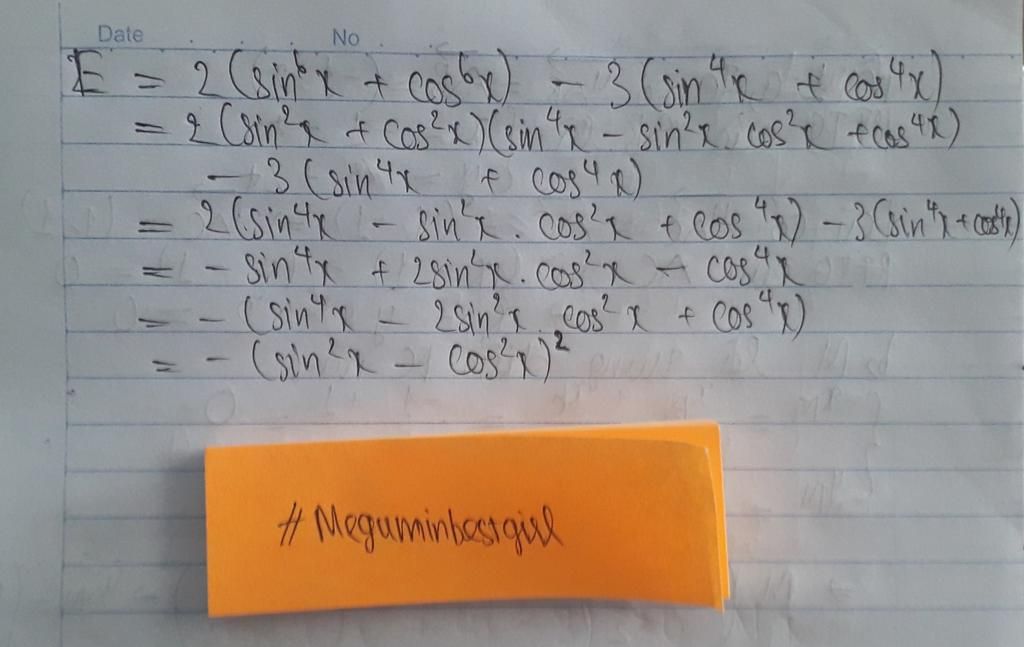 Date No
E = 2 (sin⁶x + cos⁶x) - 3 (sin⁴x + cos⁴x)
= 2 (sin²x + cos²x)(sin⁴x - sin²x. cos²x + cos⁴x)
- 3 (sin⁴x + cos⁴x)
= 2 (sin⁴x - sin²x. cos²x + cos⁴x) - 3 (sin⁴x + cos⁴x)
= - sin⁴x + 2sin²x. cos²x - cos⁴x
= - (sin⁴x - 2sin²x. cos²x + cos⁴x)
= - (sin²x - cos²x)²
#Meguminbestgirl